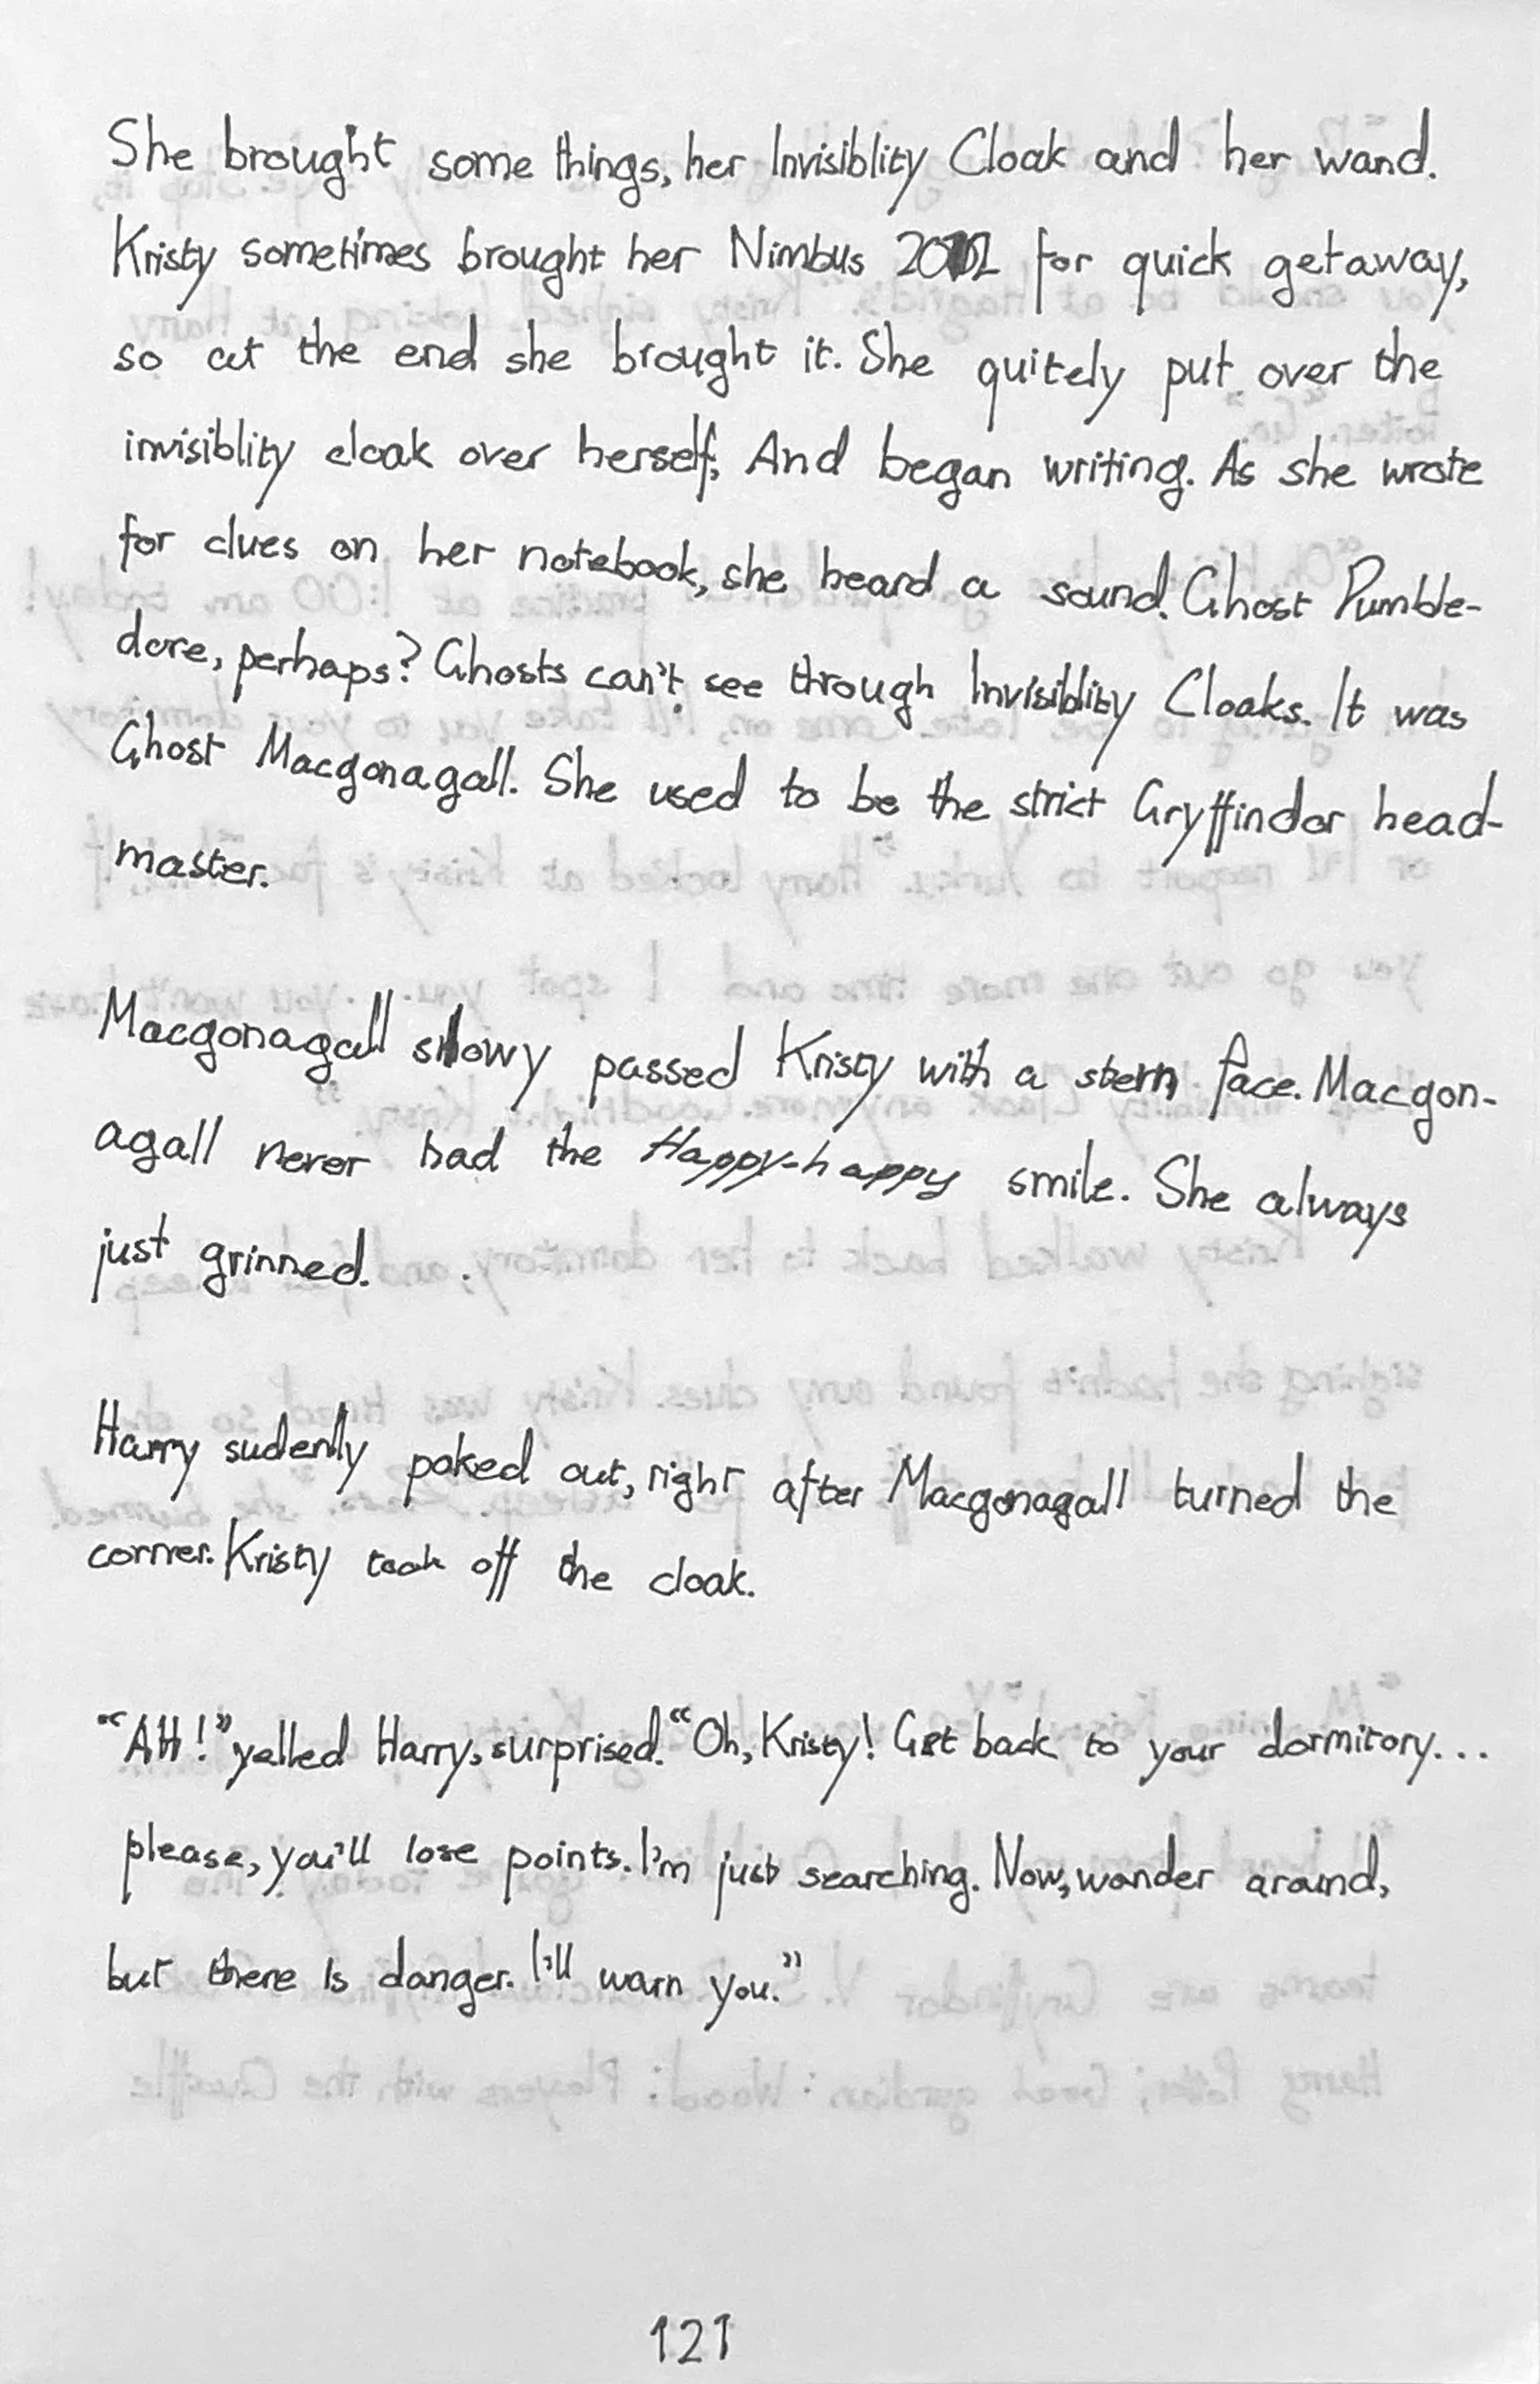 She brought some things, her Invisiblity Cloak and her wand.
Kristy sometimes brought her Nimbus for quick getaway,
so at the end she brought it. She quitely put over the
invisiblity cloak over herself, And began writing. As she wrote
for clues on her notebook, she heard a sound. Ghost Dumble-
dore, perhaps? Ghosts can't see through Invisiblity Cloaks. It was
Ghost Macgonagall. She used to be the strict Gryffindor head-
master.
Macgonagall slowy passed Kristy with a stern face. Macgon-
agall never had the Happy-happy smile. She always
just grinned.
Harry sudenlly poked out, right after Macgonagall turned the
corner. Kristy took off the cloak.
"AH!" yelled Harry, surprised. "Oh, Kristy! Get back to your dormitory...
please, you'll lose points. I'm just searching. Now, wander around,
but there is danger. I'll warn you."
121